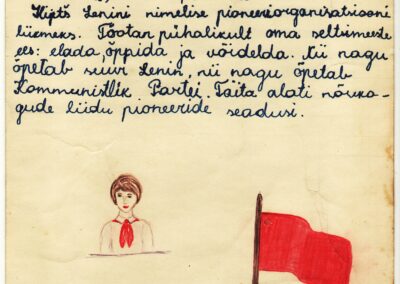 Lenini nimelise pioneeriorganisatsiooni
liikmeks. Tõotan pühalikult oma seltsimeeste
ees: elada, õppida ja võidelda. Nii nagu
õpetab suur Lenin, nii nagu õpetab
Kommunistlik Partei. Täita alati nõuko-
gude liidu pioneeride seadusi.